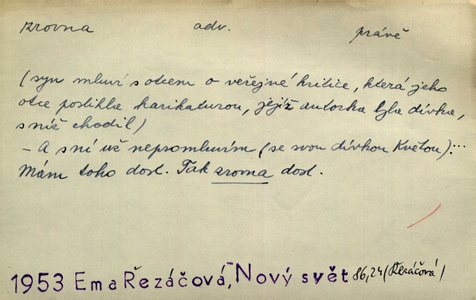 zrovna adv. právě
(syn mluví s otcem o veřejné kritice, která jeho
otce postihla karikaturou, jejíž autorka byla dívka,
s níž chodil)
– A s ní už nepromluvím (se svou dívkou Květou)...
Mám toho dost. Tak zrovna dost.
1953 Ema Řezáčová, "Nový svět 86,24 (Řezáčová)